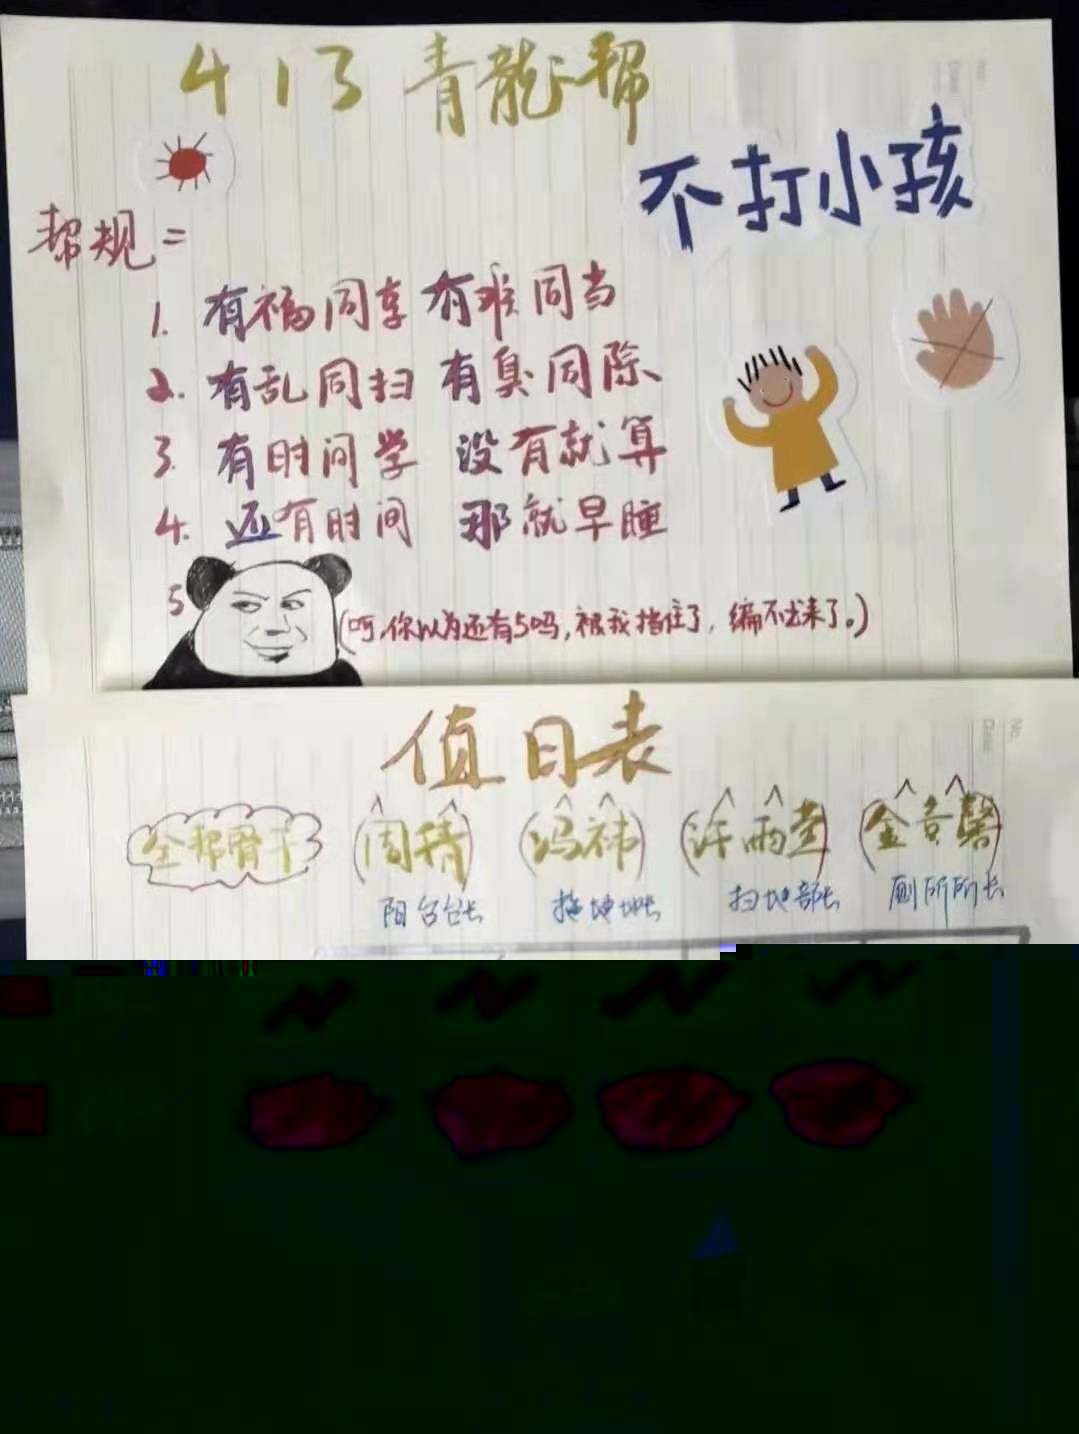 413 青龍帮
不打小孩
帮规=
1. 有福同享 有难同当
2. 有乱同扫 有臭同除
3. 有时间学 没有就算
4. 还有时间 那就早睡
5 (呵,你以为还有5吗,被我挡住了,编不出来了。)
No.
Date
值日表
全帮骨干 (周精) (冯祎) (许雨萱) (金音馨)
阳台台长 拖地地长 扫地部长 厕所所长